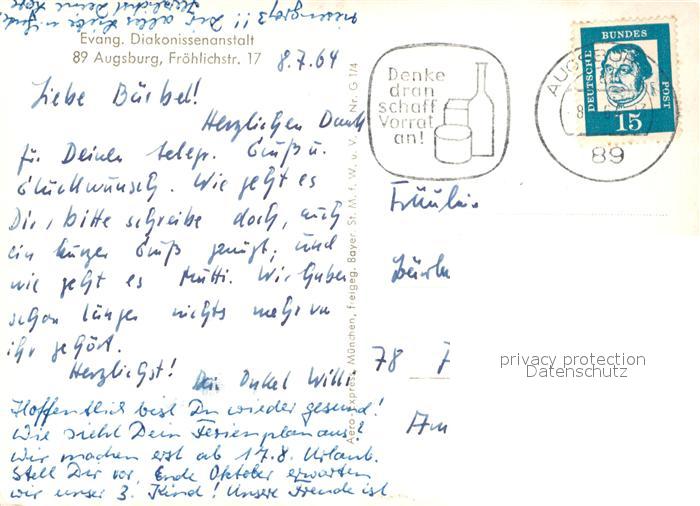 riesengroß!! Dir alles Liebe u. Gute,
herzlichst Deine Rose
Evang. Diakonissenanstalt
89 Augsburg, Fröhlichstr. 17
8.7.64
Liebe Bärbel!
Herzlichen Dank
für Deinen telegr. Gruß u.
Glückwunsch. Wie geht es
Dir, bitte schreibe doch, auch
ein kurzer Gruß genügt, und
wie geht es Mutti. Wir haben
schon länger nichts mehr von
ihr gehört.
Herzlichst! Dein Onkel Willi
Hoffentlich bist Du wieder gesund!
Wie sieht Dein Ferienplan aus?
Wir machen erst ab 17.8. Urlaub.
Stell Dir vor, Ende Oktober erwarten
wir unser 3. Kind! Unsere Freude ist
Aero-Express, München, freigeg. Bayer. St. M. f. W. u. V. Nr. G 1/4
Denke
dran
schaff
Vorrat
an!
AUGSBURG
89
DEUTSCHE BUNDES POST
15
Fräulein
Bärb
78
Am
privacy protection
Datenschutz